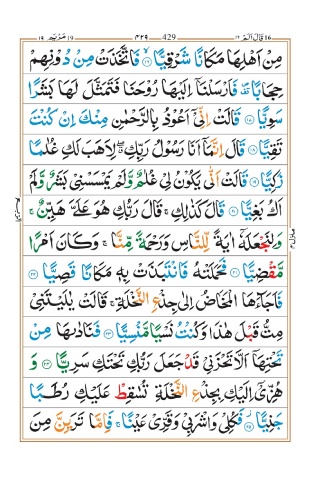 قال الم ١٦ ٤٢٩ 429 مريم ١٩
مِنْ اَهْلِهَا مَكَانًا شَرْقِيًّا ۙ﴿۱۶﴾ فَاتَّخَذَتْ مِنْ دُوْنِهِمْ
حِجَابًا ۪۟ فَاَرْسَلْنَاۤ اِلَيْهَا رُوْحَنَا فَتَمَثَّلَ لَهَا بَشَرًا
سَوِيًّا ﴿۱۷﴾ قَالَتْ اِنِّيْۤ اَعُوْذُ بِالرَّحْمٰنِ مِنْكَ اِنْ كُنْتَ
تَقِيًّا ﴿۱۸﴾ قَالَ اِنَّمَاۤ اَنَا رَسُوْلُ رَبِّكِ ۖۗ لِاَهَبَ لَكِ غُلٰمًا
زَكِيًّا ﴿۱۹﴾ قَالَتْ اَنّٰى يَكُوْنُ لِيْ غُلٰمٌ وَّلَمْ يَمْسَسْنِيْ بَشَرٌ وَّلَمْ
اَكُ بَغِيًّا ﴿۲۰﴾ قَالَ كَذٰلِكِ ۚ قَالَ رَبُّكِ هُوَ عَلَيَّ هَيِّنٌ ۚ
وَلِنَجْعَلَهٗۤ اٰيَةً لِّلنَّاسِ وَرَحْمَةً مِّنَّا ۚ وَكَانَ اَمْرًا
مَّقْضِيًّا ﴿۲۱﴾ فَحَمَلَتْهُ فَانْتَبَذَتْ بِهٖ مَكَانًا قَصِيًّا ﴿۲۲﴾
فَاَجَآءَهَا الْمَخَاضُ اِلٰى جِذْعِ النَّخْلَةِ ۚ قَالَتْ يٰلَيْتَنِيْ
مِتُّ قَبْلَ هٰذَا وَكُنْتُ نَسْيًا مَّنْسِيًّا ﴿۲۳﴾ فَنَادٰىهَا مِنْ
تَحْتِهَاۤ اَلَّا تَحْزَنِيْ قَدْ جَعَلَ رَبُّكِ تَحْتَكِ سَرِيًّا ﴿۲۴﴾ وَ
هُزِّيْۤ اِلَيْكِ بِجِذْعِ النَّخْلَةِ تُسٰقِطْ عَلَيْكِ رُطَبًا
جَنِيًّا ﴿۲۵﴾ فَكُلِيْ وَاشْرَبِيْ وَقَرِّيْ عَيْنًا ۚ فَاِمَّا تَرَيِنَّ مِنَ